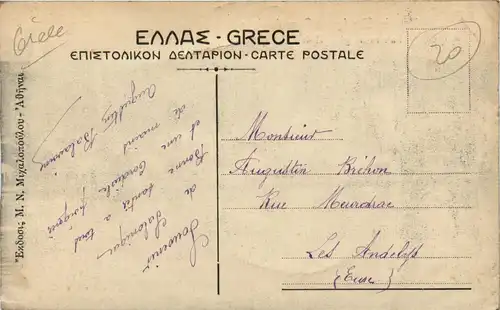 Grèce
20
ΕΛΛΑΣ - GRECE
ΕΠΙΣΤΟΛΙΚΟΝ ΔΕΛΤΑΡΙΟΝ - CARTE POSTALE
Ἔκδοσις Μ. Ν. Μιχαλοπούλου - Ἀθῆναι
Souvenir
de Salonique
Bonne santé a tous
et une
de
Augustin
Monsieur
Augustin Bréhon
Rue
Les Andelys
(Eure)